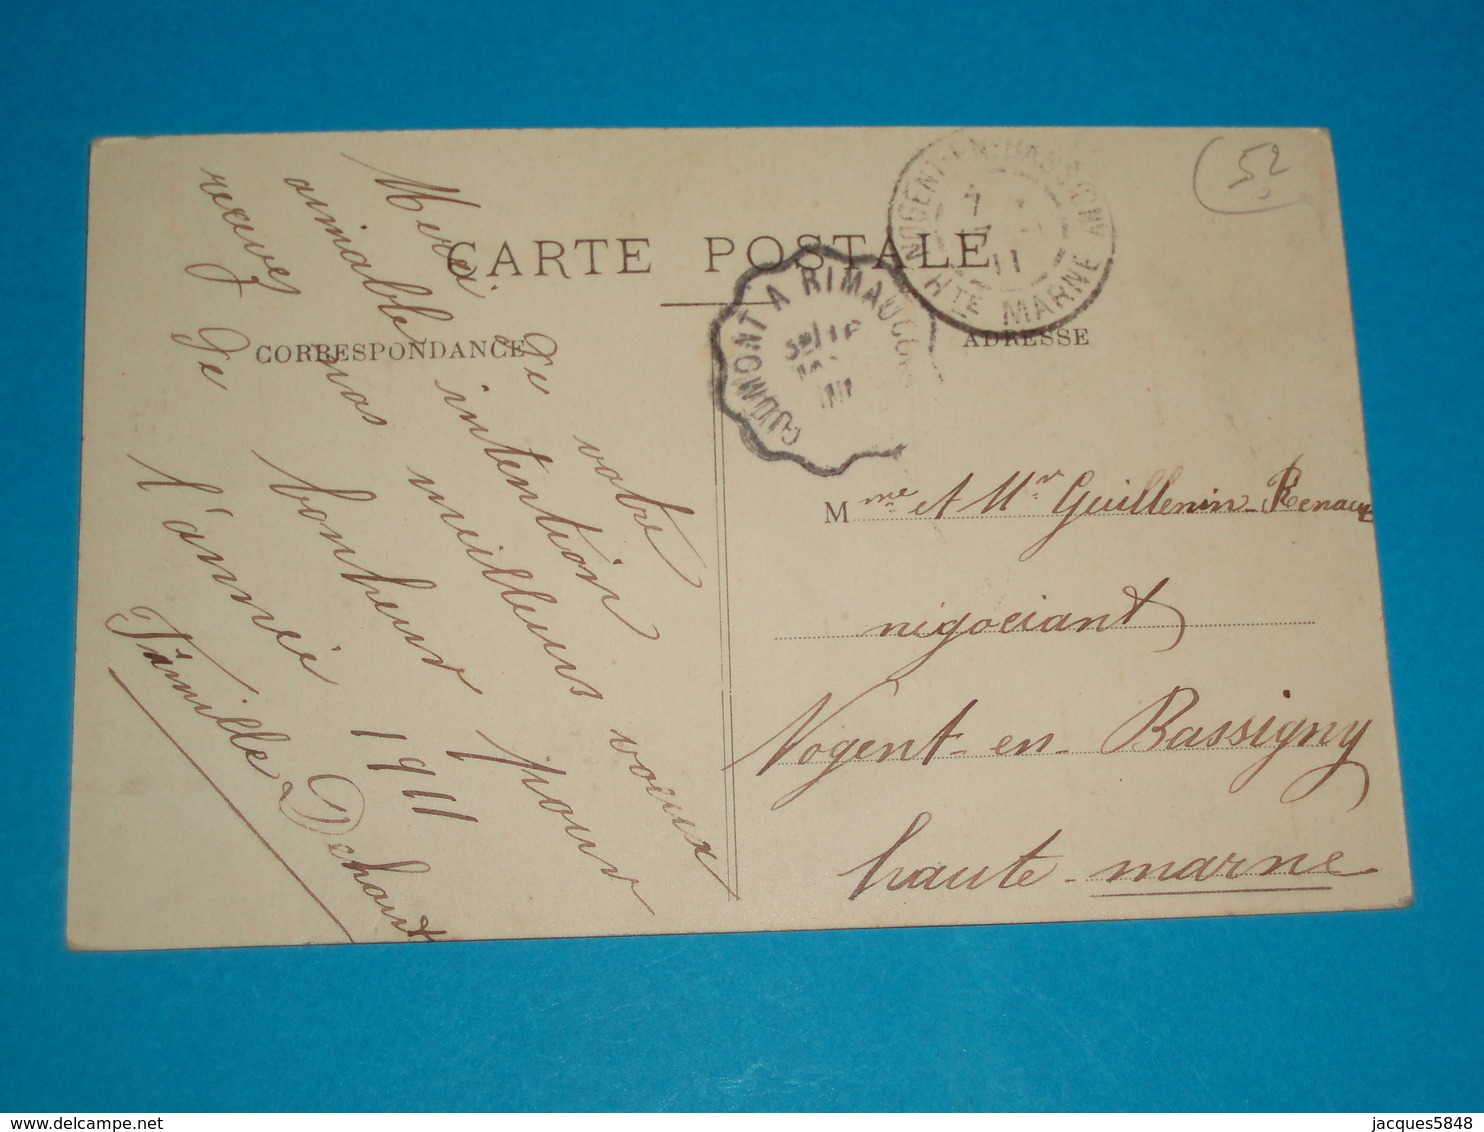 CARTE POSTALE
CORRESPONDANCE
ADRESSE
52
NOGENT-EN-BASSIGNY
HTE MARNE
11
GUDMONT A RIMAUCOURT
Merci de votre
aimable intention
recevez nos meilleurs voeux
de bonheur pour
l'année 1911
Famille Dehaut
Mme et Mr Guillemin-Renaut
négociant
Nogent-en-Bassigny
haute-marne
jacques5848